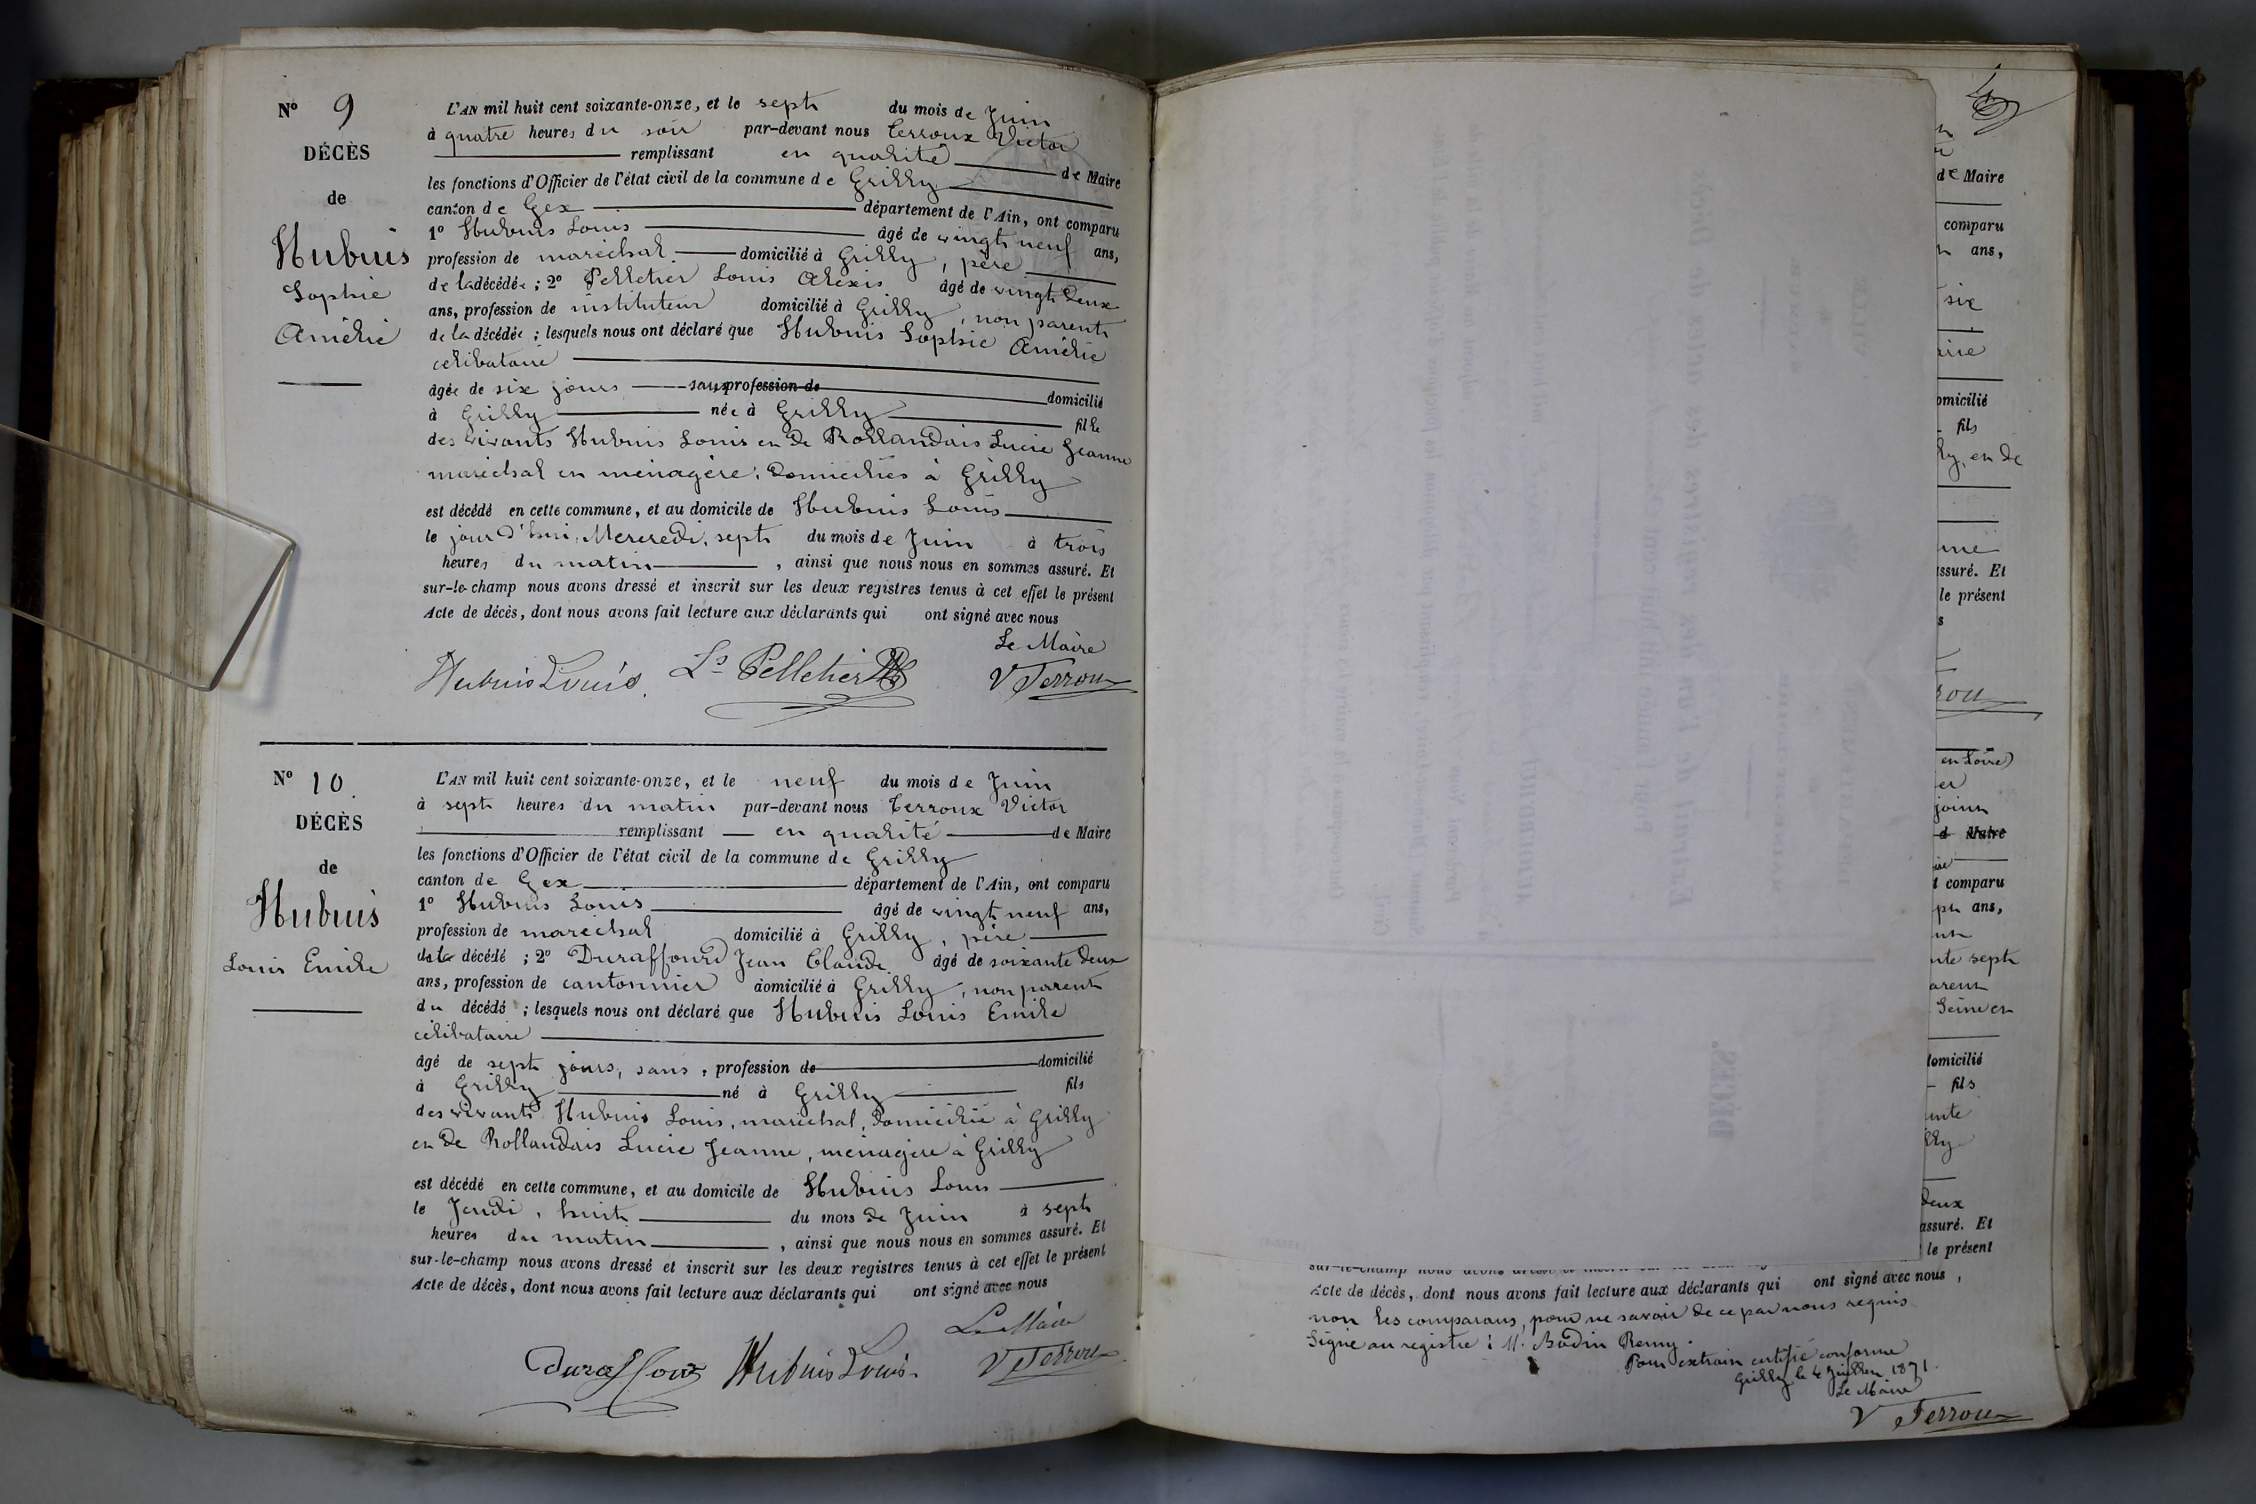 N° 9
DÉCÈS
de
Hubuis
Sophie
Amélie
L'AN mil huit cent soixante-onze, et le sept du mois de Juin
à quatre heures du soir par-devant nous Terroux Victor
remplissant en qualité de Maire
les fonctions d'Officier de l'état civil de la commune de Grilly
canton de Gex département de l'Ain, ont comparu
1° Hubuis Louis âgé de vingt neuf ans,
profession de maréchal domicilié à Grilly, père
de la décédée ; 2° Pelletier Louis Alexis âgé de vingt deux
ans, profession de instituteur domicilié à Grilly, non parent
de la décédée ; lesquels nous ont déclaré que Hubuis Sophie Amélie
célibataire
âgée de six jours sans profession de domicilié
à Grilly née à Grilly fille
des vivants Hubuis Louis et de Rollandais Lucie Jeanne
maréchal et ménagère, domiciliés à Grilly
est décédé en cette commune, et au domicile de Hubuis Louis
le jour d'hui, Mercredi, sept du mois de Juin à trois
heures du matin, ainsi que nous nous en sommes assuré. Et
sur-le-champ nous avons dressé et inscrit sur les deux registres tenus à cet effet le présent
Acte de décès, dont nous avons fait lecture aux déclarants qui ont signé avec nous
Le Maire
Hubuis Louis. Ls Pelletier V Terroux
N° 10.
DÉCÈS
de
Hubuis
Louis Emile
L'AN mil huit cent soixante-onze, et le neuf du mois de Juin
à sept heures du matin par-devant nous Terroux Victor
remplissant en qualité de Maire
les fonctions d'Officier de l'état civil de la commune de Grilly
canton de Gex département de l'Ain, ont comparu
1° Hubuis Louis âgé de vingt neuf ans,
profession de maréchal domicilié à Grilly, père
de la décédé ; 2° Duraffourd Jean Claude âgé de soixante deux
ans, profession de cantonnier domicilié à Grilly, non parent
du décédé ; lesquels nous ont déclaré que Hubuis Louis Emile
célibataire
âgé de sept jours, sans, profession de domicilié
à Grilly né à Grilly fils
des vivants Hubuis Louis, maréchal, domicilié à Grilly
et de Rollandais Lucie Jeanne, ménagère à Grilly
est décédé en cette commune, et au domicile de Hubuis Louis
le Jeudi, huit du mois de Juin à sept
heures du matin, ainsi que nous nous en sommes assuré. Et
sur-le-champ nous avons dressé et inscrit sur les deux registres tenus à cet effet le présent
Acte de décès, dont nous avons fait lecture aux déclarants qui ont signé avec nous
Le Maire
Duraffour Hubuis Louis. V Terroux
de Maire
comparu
ans,
six
omicilié
fils
lly, et de
assuré. Et
le présent
rou
en Loire
join
de Maire
comparu
ans,
nte sept
arent
Seine et
domicilié
fils
lly
deux
assuré. Et
le présent
Acte de décès, dont nous avons fait lecture aux déclarants qui ont signé avec nous,
non les comparans, pour ne savoir de ce par nous requis
Signé au registre : M. Bodin Remy.
Pour extrait certifié conforme
Grilly le 4 Juillet 1871.
Le Maire
V Terroux